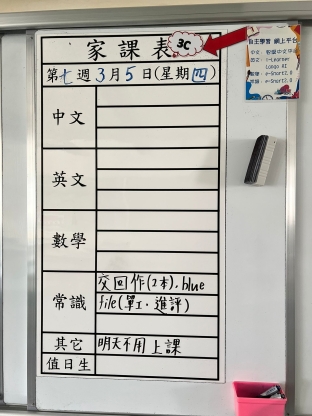 家課表
3C
第七週3月5日(星期四)
中文
英文
數學
常識
交回作(2本), blue
file(單I, 進評)
其它
明天不用上課
值日生
自主學習 網上平台
中文 :
英文 : i-Learner
Longo AI
數學 : e-Smart2.0
常識 : e-Smart2.0